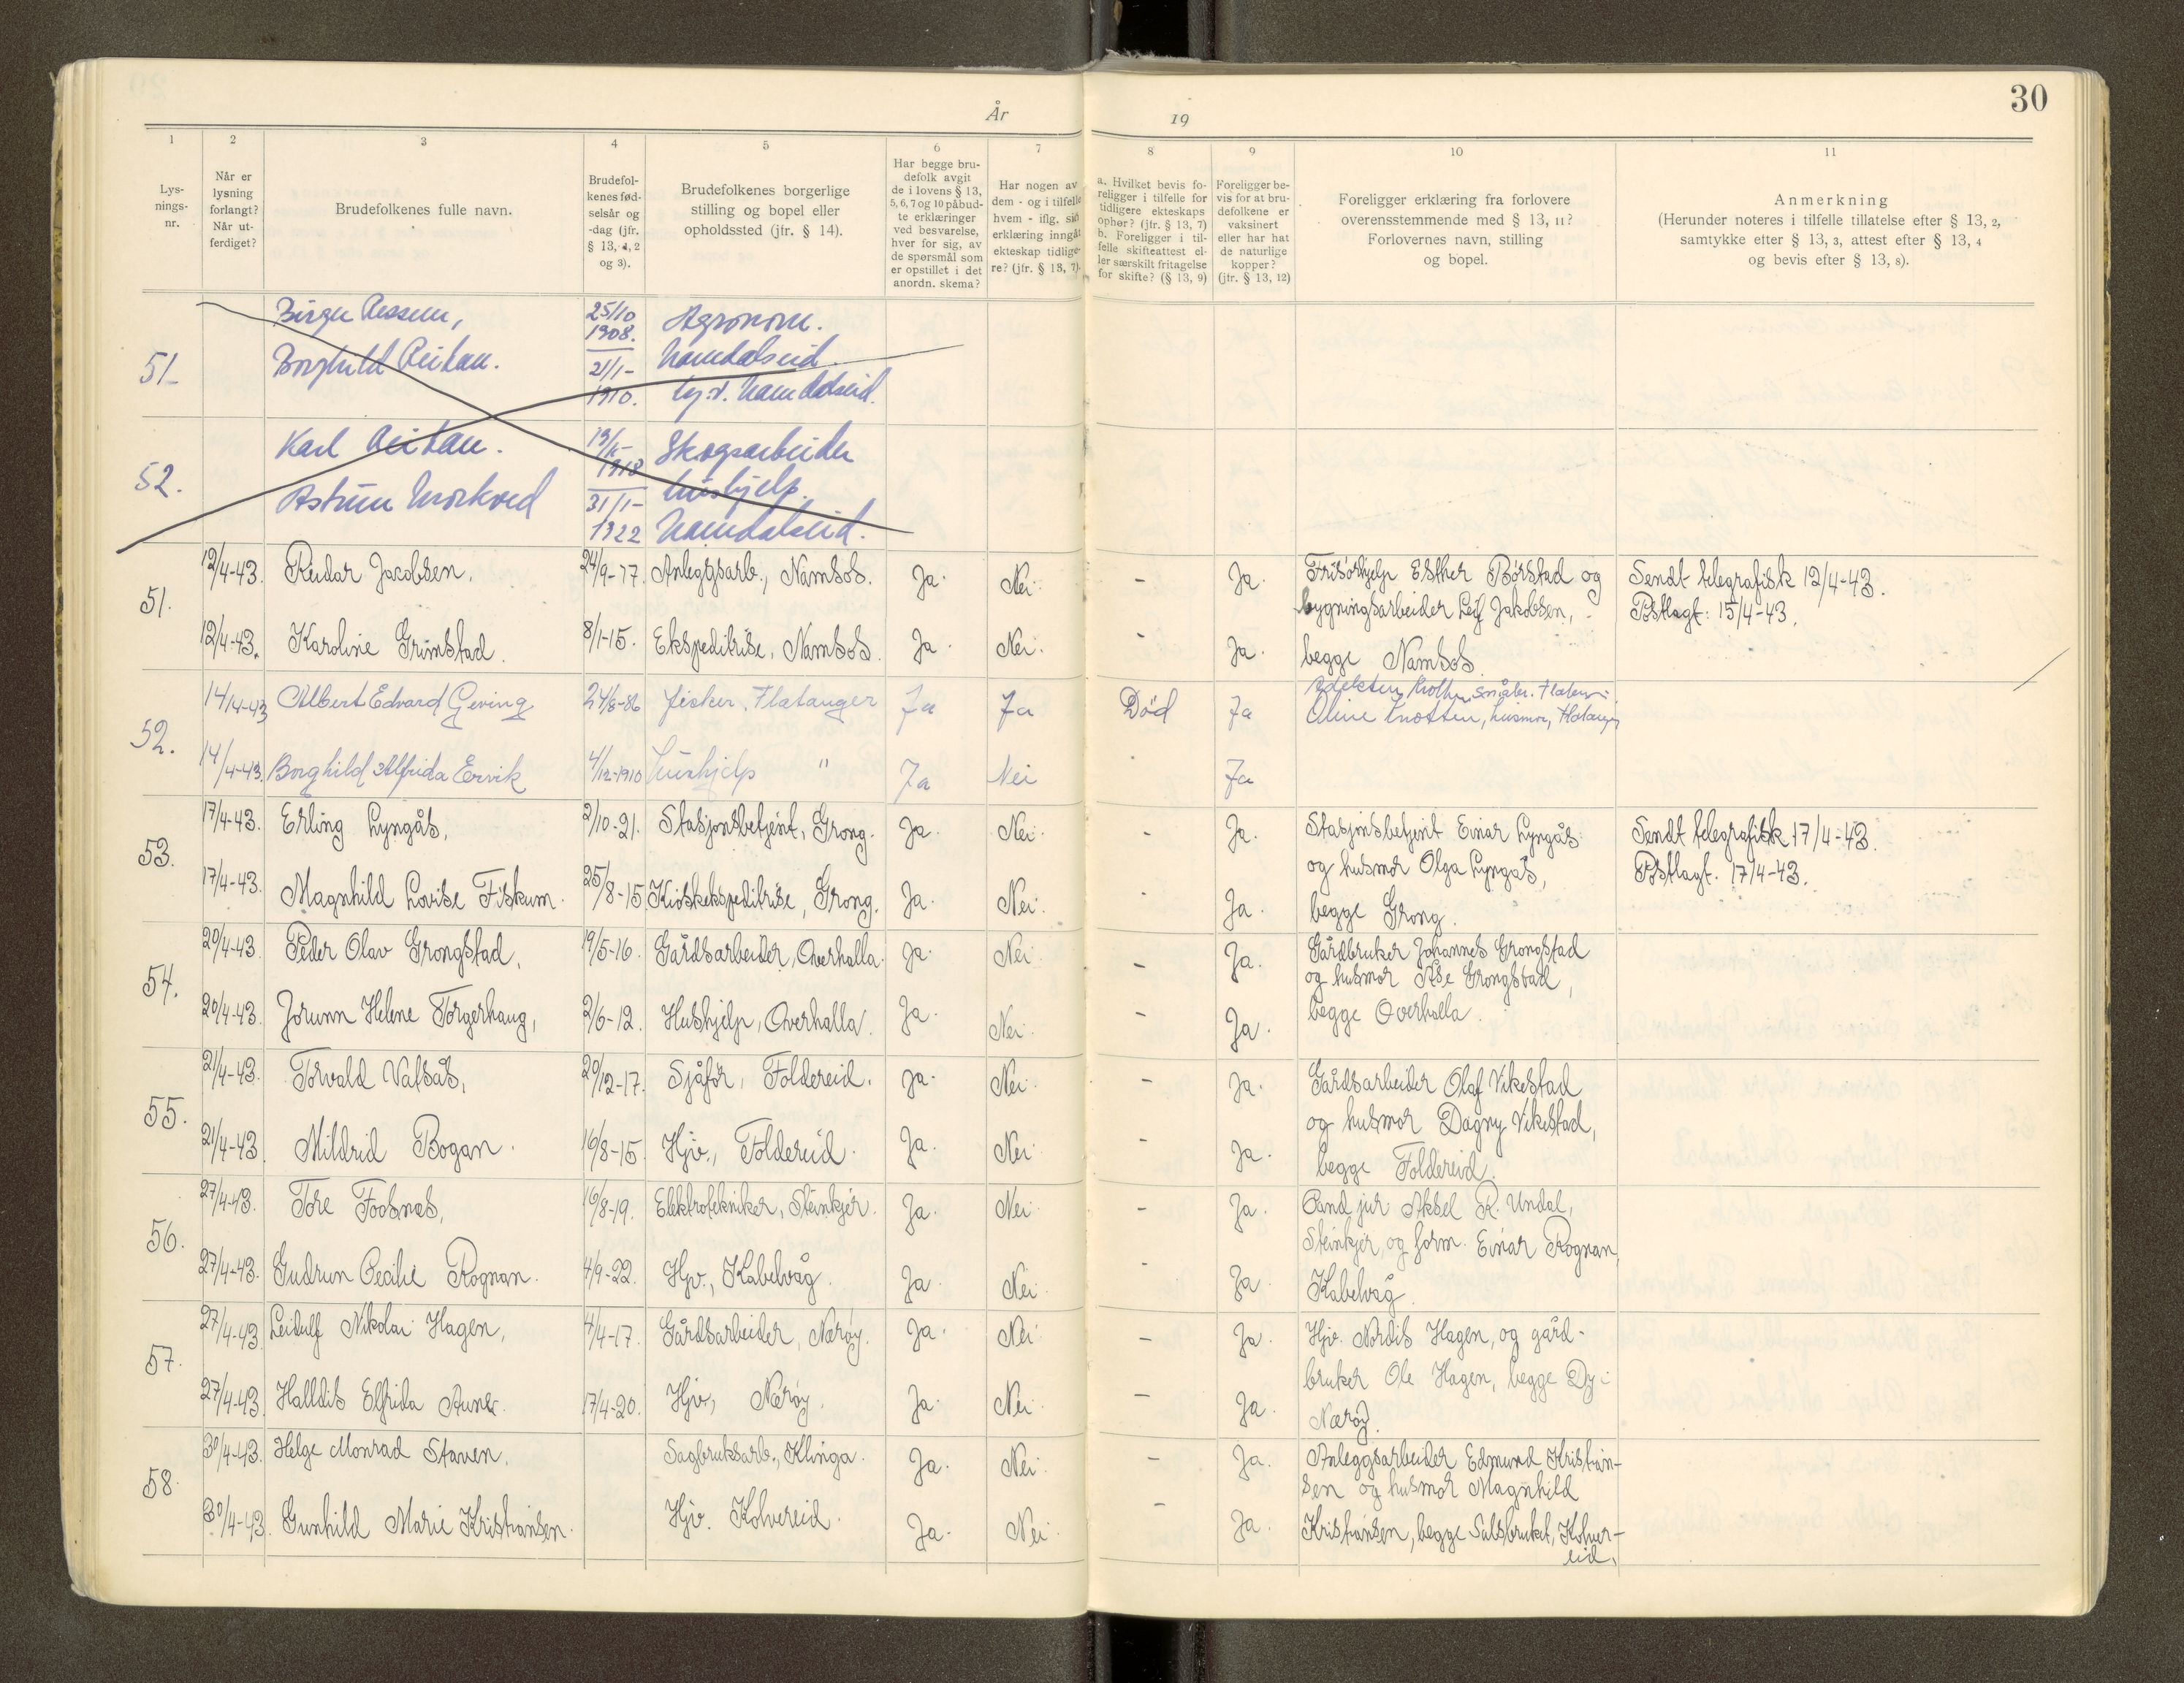 30
År 19
1 2 3 4 5 6 7 8 9 10 11
Lys-
nings-
nr.
Når er
lysning
forlangt?
Når ut-
ferdiget?
Brudefolkenes fulle navn.
Brudefol-
kenes fød-
selsår og
-dag (jfr.
§ 13, 1, 2
og 3).
Brudefolkenes borgerlige
stilling og bopel eller
opholdssted (jfr. § 14).
Har begge bru-
defolk avgit
de i lovens § 13,
5, 6, 7 og 10 påbud-
te erklæringer
ved besvarelse,
hver for sig, av
de spørsmål som
er opstillet i det
anordn. skema?
Har nogen av
dem - og i tilfelle
hvem - iflg. sin
erklæring inngåt
ekteskap tidlige-
re? (jfr. § 13, 7).
a. Hvilket bevis fo-
religger i tilfelle for
tidligere ekteskaps
ophør? (jfr. § 13, 7)
b. Foreligger i til-
felle skifteattest el-
ler særskilt fritagelse
for skifte? (§ 13, 9)
Foreligger be-
vis for at bru-
defolkene er
vaksinert
eller har hat
de naturlige
kopper?
(jfr. § 13, 12)
Foreligger erklæring fra forlovere
overensstemmende med § 13, 11?
Forlovernes navn, stilling
og bopel.
Anmerkning
(Herunder noteres i tilfelle tillatelse efter § 13, 2,
samtykke efter § 13, 3, attest efter § 13, 4
og bevis efter § 13, 8).
51
Birger 25/10 1908. Agronom. Namdalseid
Borghild Reitan. 21/1- 1910. Namdalseid.
52.
Karl Reitan. 1918 Skogsarbeider
31/1- 1922 hushjelp. Namdalseid.
51.
12/4-43. Reidar Jacobsen. 24/9-17. Anleggsarb., Namsos. Ja. Nei. - Ja.
12/4-43. Karoline Grimstad. 8/1-15. Ekspeditrise, Namsos. Ja. Nei. - Ja.
Frisørhjelp Esther Børstad og
bygningsarbeider Leif Jakobsen,
begge Namsos
Sendt telegrafisk 12/4-43.
Postlagt: 15/4-43.
52.
14/4-43 Albert Edvard Geving 24/8-86 fisker, Flatanger Ja Ja Død Ja
14/4-43. Borghild Alfrida Ervik 4/12-1910 hushjelp " Ja Nei Ja
Oline Knotten, husmor, Flatanger
53.
17/4-43. Erling Lyngås, 2/10-21. Stasjonsbetjent, Grong. Ja. Nei. - Ja.
17/4-43. Magnhild Lovise Fiskum. 25/8-15. Kioskekspeditrise, Grong. Ja. Nei. - Ja.
Stasjonsbetjent Einar Lyngås
og husmor Olga Lyngås,
begge Grong.
Sendt telegrafisk 17/4-43.
Postlagt. 17/4-43.
54.
20/4-43 Peder Olav Grongstad, 19/5-16. Gårdsarbeider, Overhalla. Ja. Nei. - Ja.
20/4-43. Jorunn Helene Torgerhaug, 2/6-12. Hushjelp, Overhalla. Ja. Nei. - Ja.
Gårdbruker Johannes Grongstad
og husmor Åse Grongstad,
begge Overhalla.
55.
21/4-43. Torvald Valsås, 20/12-17. Sjåfør, Foldereid. Ja. Nei. - Ja.
21/4-43. Mildrid Bogan. 16/8-15. Hjv., Foldereid. Ja. Nei. - Ja.
Gårdsarbeider Olaf Vikestad
og husmor Dagny Vikestad,
begge Foldereid.
56.
27/4-43. Tore Foosnæs, 16/8-19. Elektrotekniker, Steinkjer. Ja. Nei. - Ja.
27/4-43. Gudrun Cecilie Rognan. 4/9-22. Hjv., Kabelvåg. Ja. Nei. - Ja.
Cand jur. Aksel R. Undal,
Steinkjer, og form. Einar Rognan,
Kabelvåg.
57.
27/4-43 Leidulf Nikolai Hagen, 4/4-17. Gårdsarbeider, Nærøy. Ja. Nei. - Ja.
27/4-43. Halldis Elfrida Aune. 17/4-20. Hjv., Nærøy. Ja. Nei. - Ja.
Hjv. Nordis Hagen, og gård-
bruker Ole Hagen, begge
Nærøy.
58.
30/4-43. Helge Monrad Staven. Sagbruksarb., Klinga. Ja. Nei. - Ja.
30/4-43. Gunhild Marie Kristiansen. Hjv. Kolvereid. Ja. Nei. - Ja.
Anleggsarbeider Edmund Kristian-
sen og husmor Magnhild
Kristiansen, begge Salsbruket, Kolver-
eid.